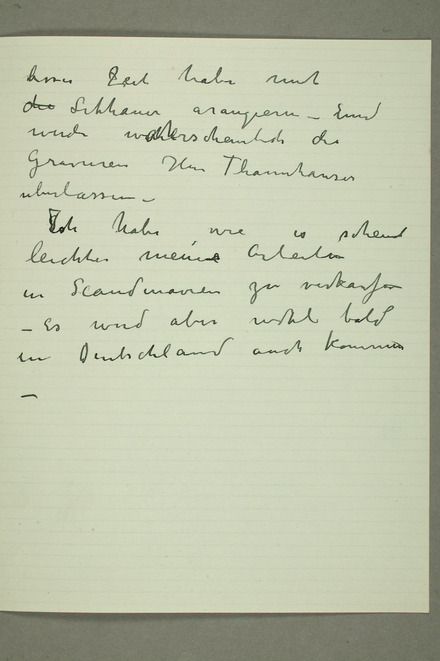 Zeit habe mit
die Schhauer arangieren – und
werde wahrscheinlich die
Gravuren Herr Thannhauser
uberlassen –
Ich habe wie es scheint
leichter meine Arbeiten
in Scandinavien zu verkaufen
– Es wird aber wohl bald
in Deutschland auch kommen
–